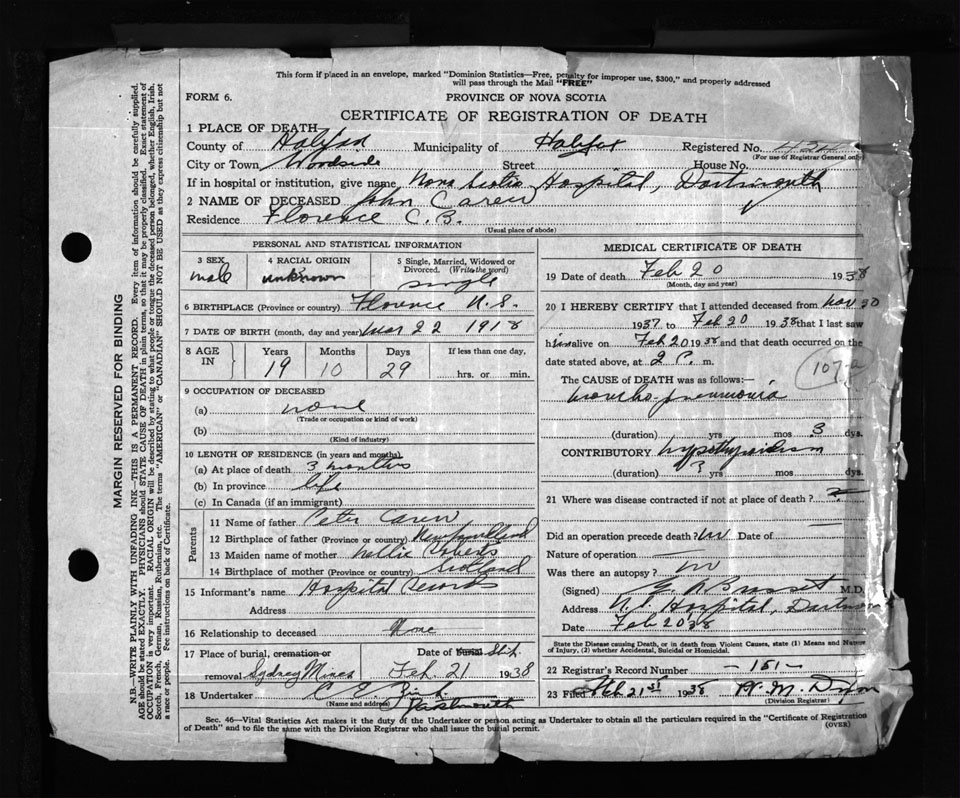 This form if placed in an envelope, marked "Dominion Statistics—Free, penalty for improper use, $300," and properly addressed
will pass through the Mail "FREE"
FORM 6.
PROVINCE OF NOVA SCOTIA
CERTIFICATE OF REGISTRATION OF DEATH
1 PLACE OF DEATH—
County of Halifax Municipality of Halifax Registered No.
(For use of Registrar General only)
City or Town Woodside Street House No.
If in hospital or institution, give name Nova Scotia Hospital, Dartmouth
2 NAME OF DECEASED John Carew
Residence Florence C.B.
(Usual place of abode)
PERSONAL AND STATISTICAL INFORMATION
3 SEX
male
4 RACIAL ORIGIN
unknown
5 Single, Married, Widowed or Divorced. (Write the word)
single
6 BIRTHPLACE (Province or country) Florence N.S.
7 DATE OF BIRTH (month, day and year) Mar 22 1918
8 AGE IN
Years Months Days If less than one day,
19 10 29 hrs. or min.
9 OCCUPATION OF DECEASED
(a) none
(Trade or occupation or kind of work)
(b)
(Kind of industry)
10 LENGTH OF RESIDENCE (in years and months)
(a) At place of death 3 months
(b) In province life
(c) In Canada (if an immigrant)
Parents
11 Name of father Peter Carew
12 Birthplace of father (Province or country) Newfoundland
13 Maiden name of mother Nellie Roberts
14 Birthplace of mother (Province or country) Scotland
15 Informant's name Hospital Records
Address
16 Relationship to deceased None
17 Place of burial, cremation or Date of burial Ship.
removal Sydney Mines Feb. 21 1938
18 Undertaker C E
(Name and address) Dartmouth
MEDICAL CERTIFICATE OF DEATH
19 Date of death Feb 20 1938
(Month, day and year)
20 I HEREBY CERTIFY that I attended deceased from Nov 30
1937 to Feb 20 1938 that I last saw
him alive on Feb 20 1938 and that death occurred on the
date stated above, at 2 P. m.
The CAUSE OF DEATH was as follows:—
107-2
Broncho-pneumonia
(duration) yrs mos 3 dys.
CONTRIBUTORY hypothyroidism
(duration) ? yrs mos. dys.
21 Where was disease contracted if not at place of death? ?
Did an operation precede death? no Date of —
Nature of operation —
Was there an autopsy? no
(Signed) M.D.
Address N.S. Hospital,
Date Feb 20 38
State the Disease causing Death, or in death from Violent Causes, state (1) Means and Nature
of Injury, (2) whether Accidental, Suicidal or Homicidal.
22 Registrar's Record Number —151—
23 Filed Feb 21st 1938
(Division Registrar)
Sec. 46—Vital Statistics Act makes it the duty of the Undertaker or person acting as Undertaker to obtain all the particulars required in the "Certificate of Registration
of Death" and to file the same with the Division Registrar who shall issue the burial permit.
(OVER)
MARGIN RESERVED FOR BINDING
N.B.—WRITE PLAINLY WITH UNFADING INK—THIS IS A PERMANENT RECORD. Every item of information should be carefully supplied.
AGE should be stated EXACTLY. PHYSICIANS should STATE CAUSE OF DEATH in plain terms, so that it may be properly classified. Exact statement of
OCCUPATION is very important. RACIAL ORIGIN will be described by stating to what people or tongue the deceased person belonged, whether English, Irish,
Scotch, French, German, Russian, Ruthenian, etc. The terms "AMERICAN" or "CANADIAN" SHOULD NOT BE USED as they express citizenship but not
a race or people. Fee instructions on back of Certificate.